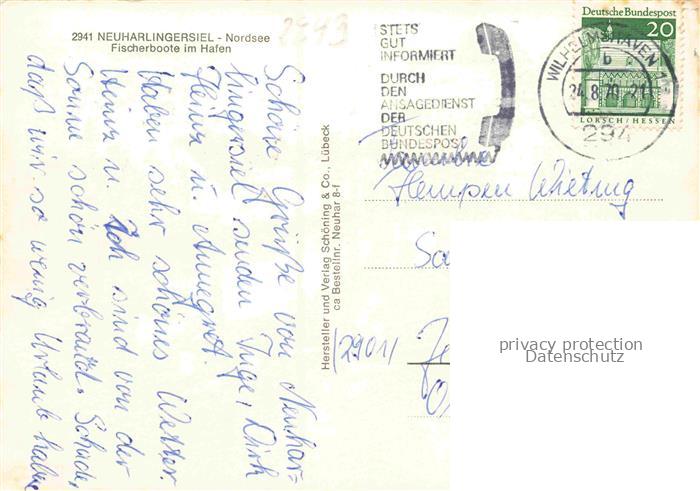 2941 NEUHARLINGERSIEL - Nordsee
Fischerboote im Hafen
2943
STETS
GUT
INFORMIERT
DURCH
DEN
ANSAGEDIENST
DER
DEUTSCHEN
BUNDESPOST
Deutsche Bundespost
20
LORSCH/HESSEN
WILHELMSHAVEN 1
b
24.8.70-21
294
Schöne Grüße von Neuhar-
lingersiel senden Inge, Dirk
Heinz u. Annegret.
Haben sehr schönes Wetter.
Heinz u. Ich sind von der
Sonne schön verbrannt. Schade,
daß wir so wenig Urlaub haben
Hersteller und Verlag Schöning & Co., Lübeck
ca Bestellnr. Neuhar 8-f
Familie
Hempen Wieting
(2901)
privacy protection
Datenschutz